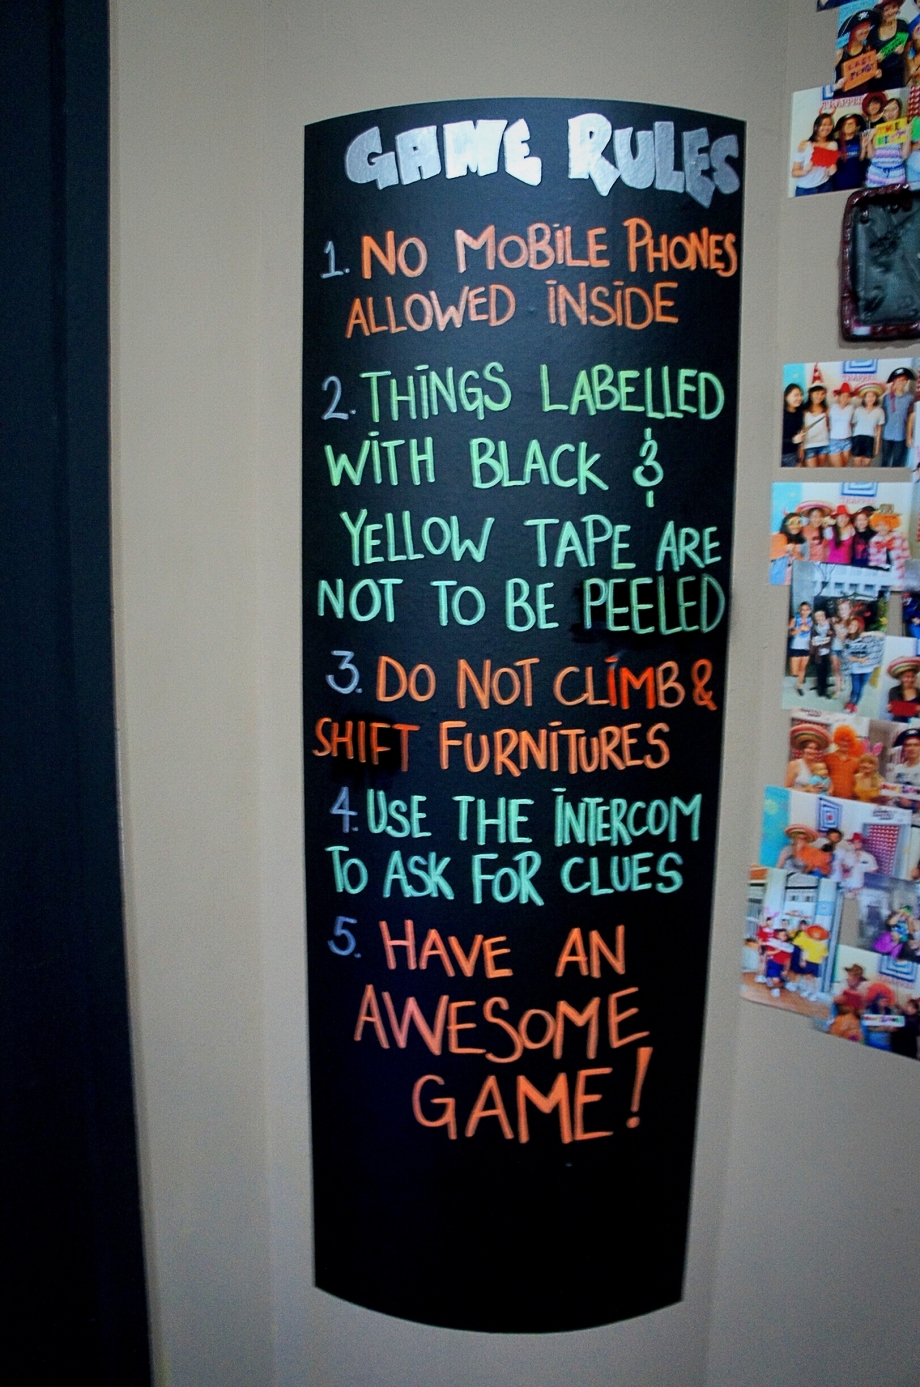 GAME RULES
1. NO MOBILE PHONES
ALLOWED INSIDE
2. THINGS LABELLED
WITH BLACK &
YELLOW TAPE ARE
NOT TO BE PEELED
3. DO NOT CLIMB &
SHIFT FURNITURES
4. USE THE INTERCOM
TO ASK FOR CLUES
5. HAVE AN
AWESOME
GAME!